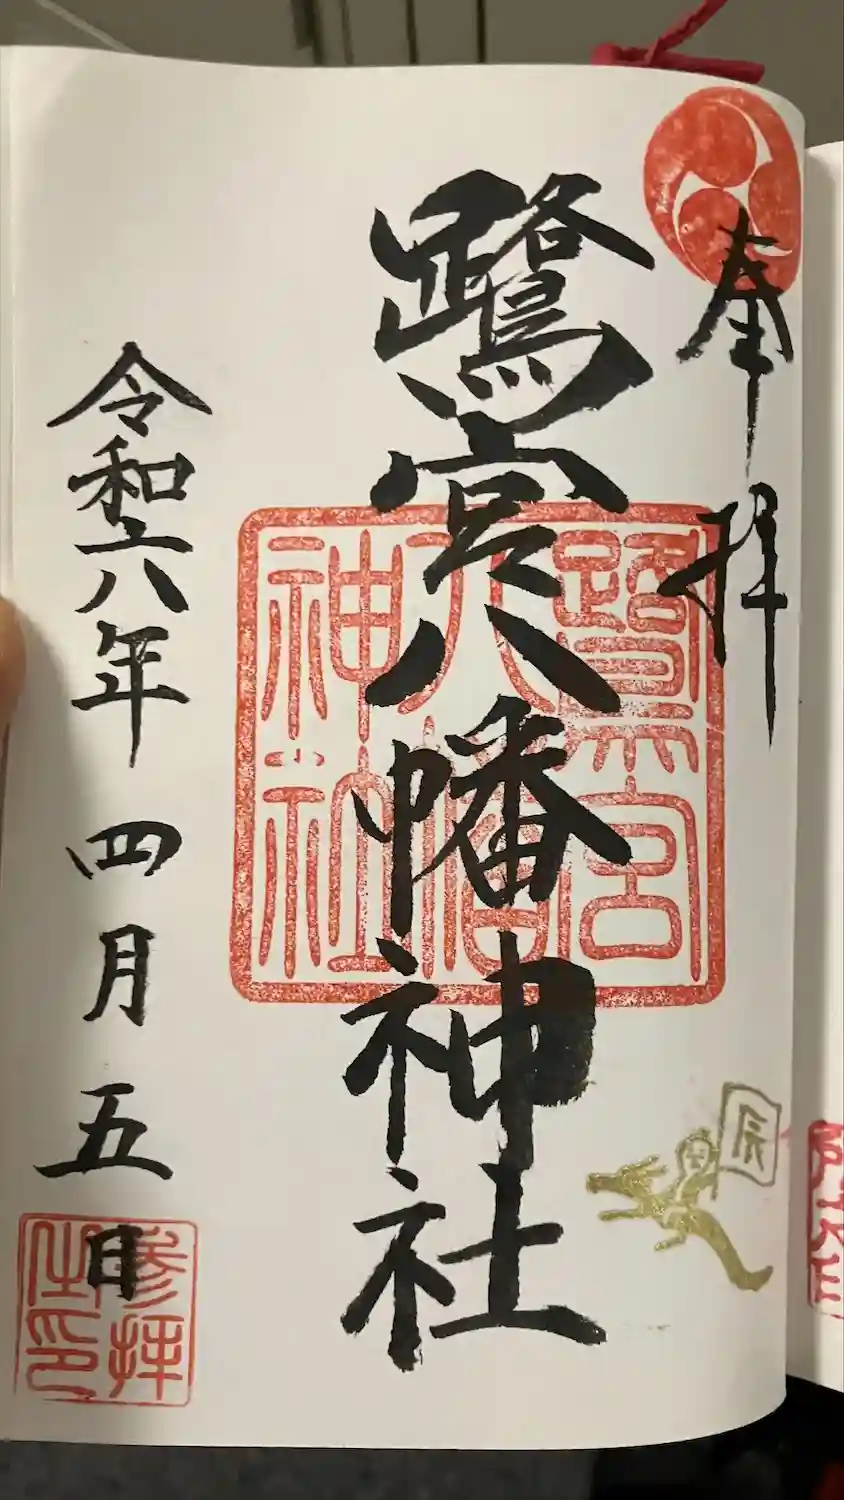 奉拝
鷺宮八幡神社
令和六年四月五日
鷺宮
八幡
神社
辰
参拝
之印